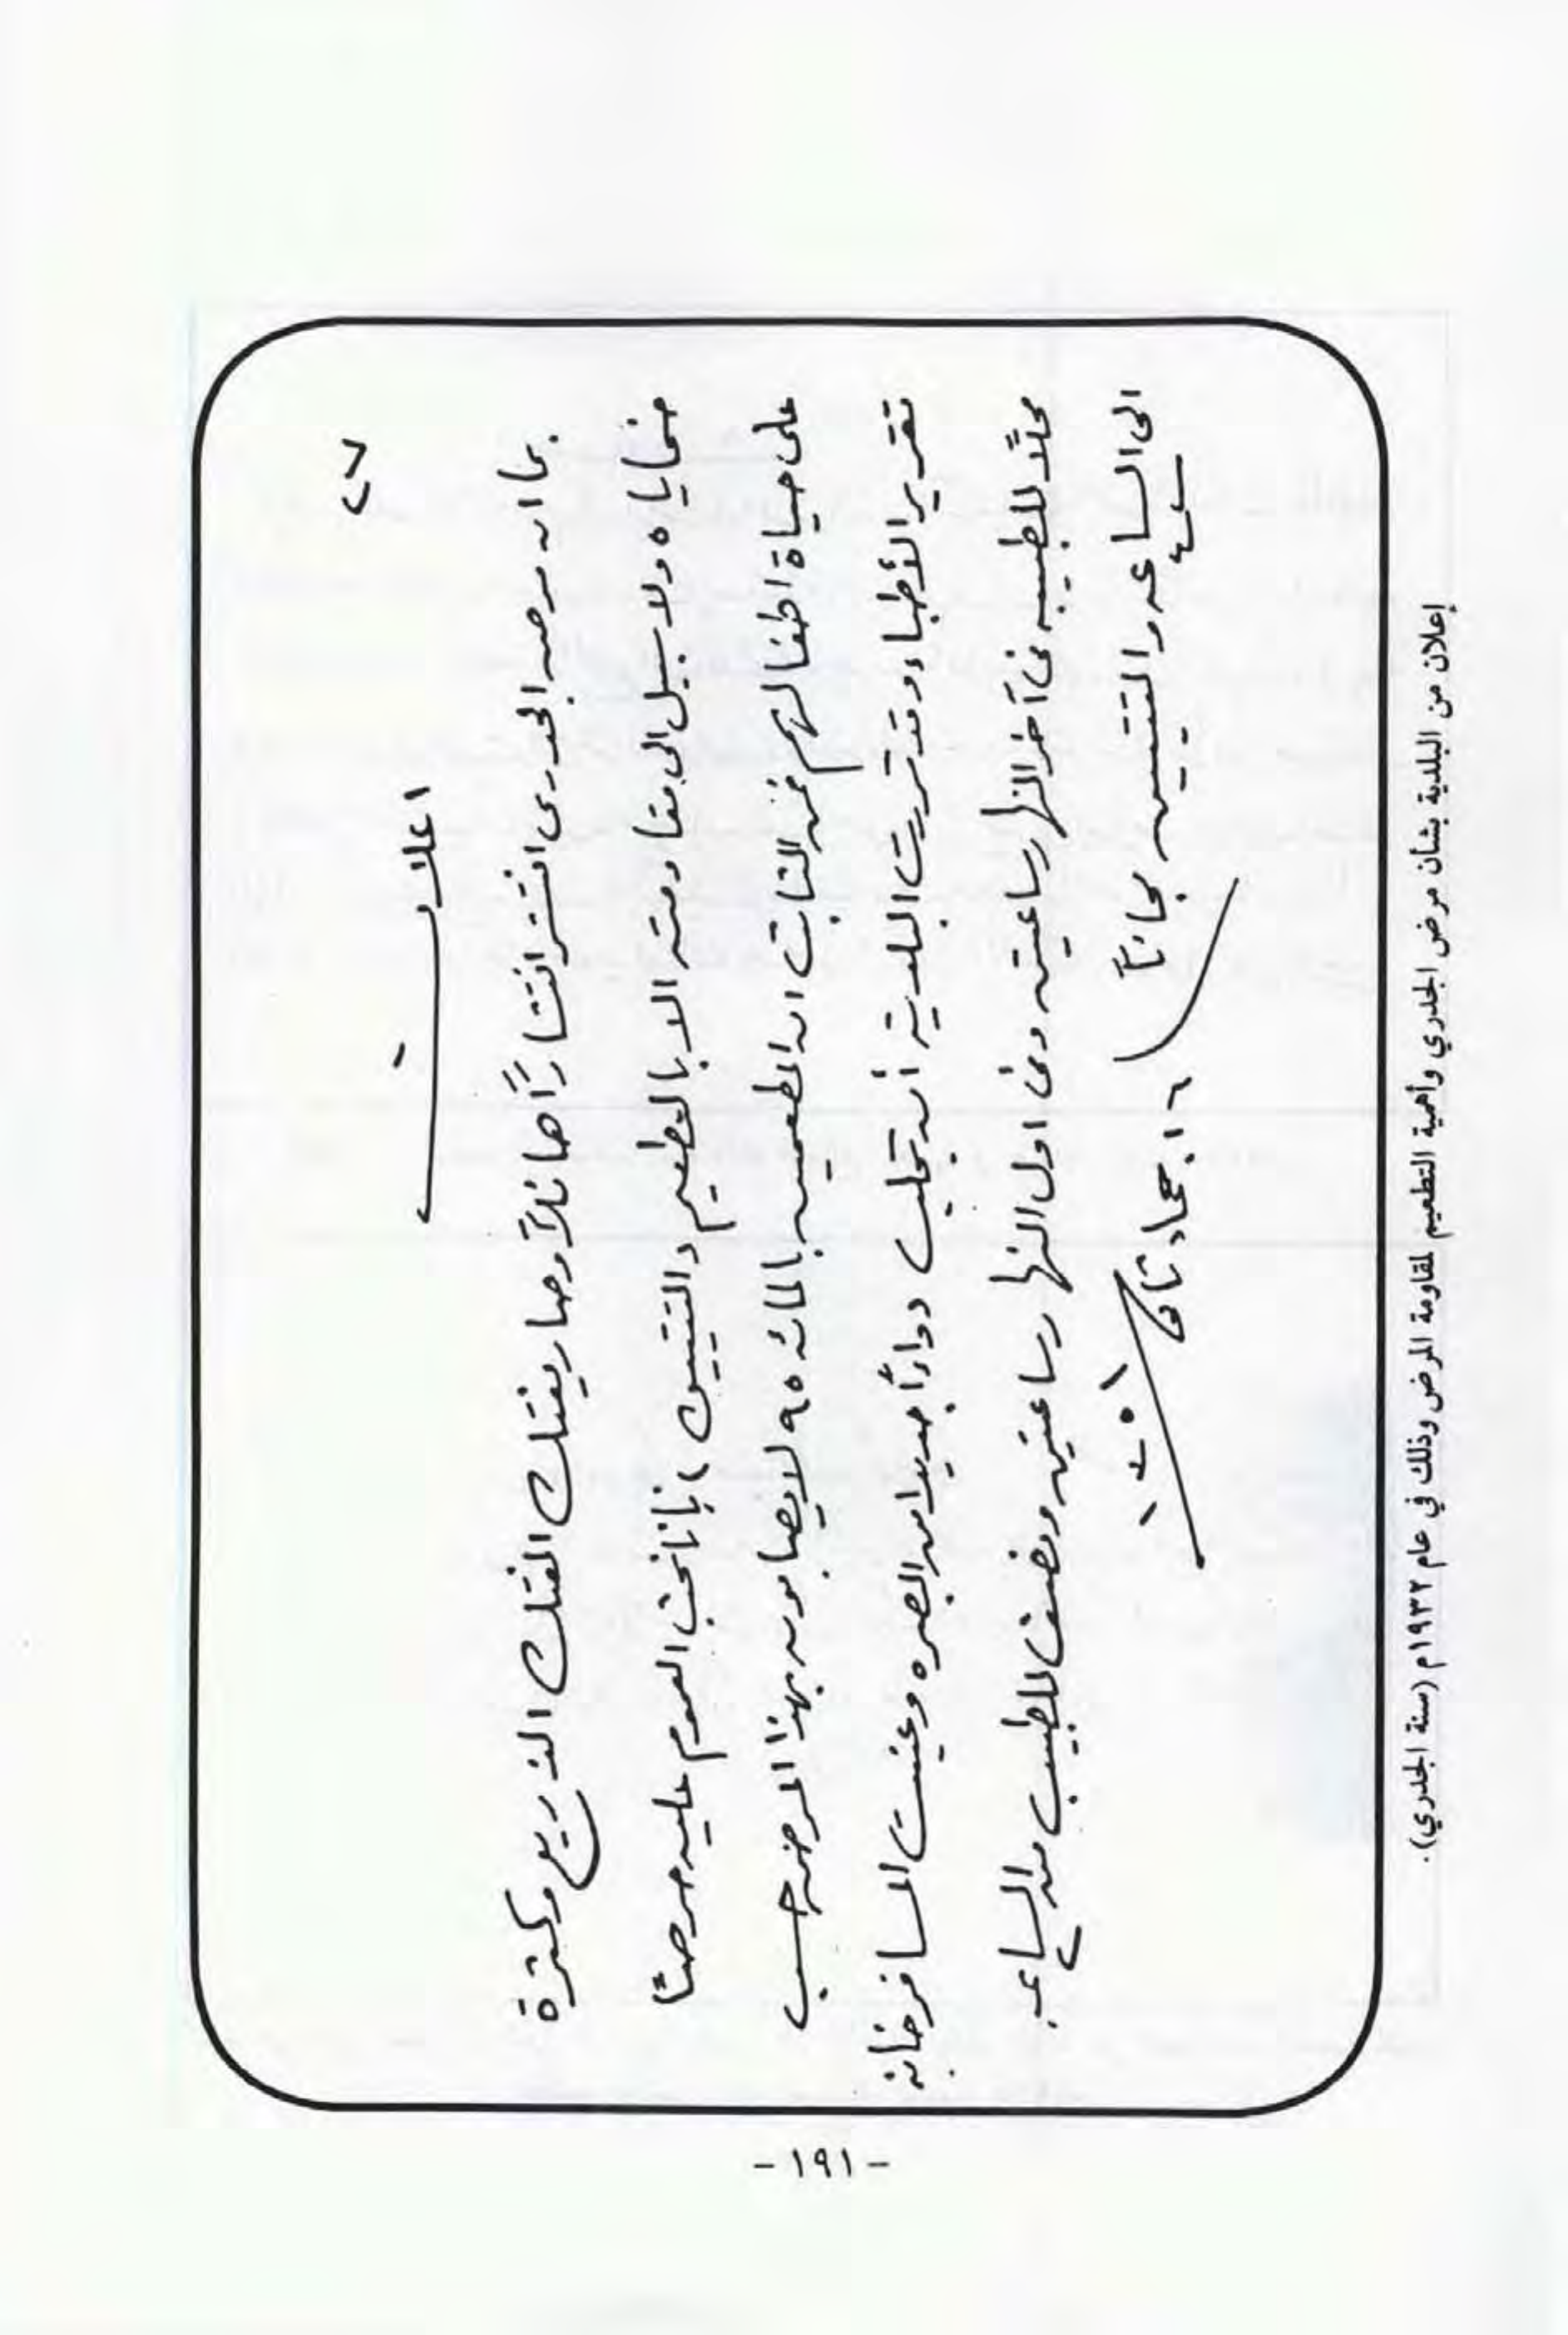 ٢٧
اعلان
بما ان مرض الجدري انتشر انتشاراً هائلاً وصار يفتك الفتك الذريع وكثرة
ضحاياه ولا سبيل الى مقاومته الا بالتطعيم (التتيين) فإنا نحث العموم عليه حرصاً
على حياة اطفالهم فمن الثابت ان المطعمين بالمائه ٩٥ لا يصابون بهذا المرض حسب
تقرير الأطباء وقد قررت البلدية أن تجلب دواءاً جديدا من البصره وعينت المسافرخانة
محلاً للطبيب في آخر النهار ساعتين وفي اول النهار ساعتين ونصف للطبيب من الساعة
الى الساعه والتتيين مجاناً
١٦ جماد ثاني ١٣٥١
إعلان من البلدية بشأن مرض الجدري وأهمية التطعيم لمقاومة المرض وذلك في عام ١٩٣٢م (سنة الجدري).
- ١٩١ -